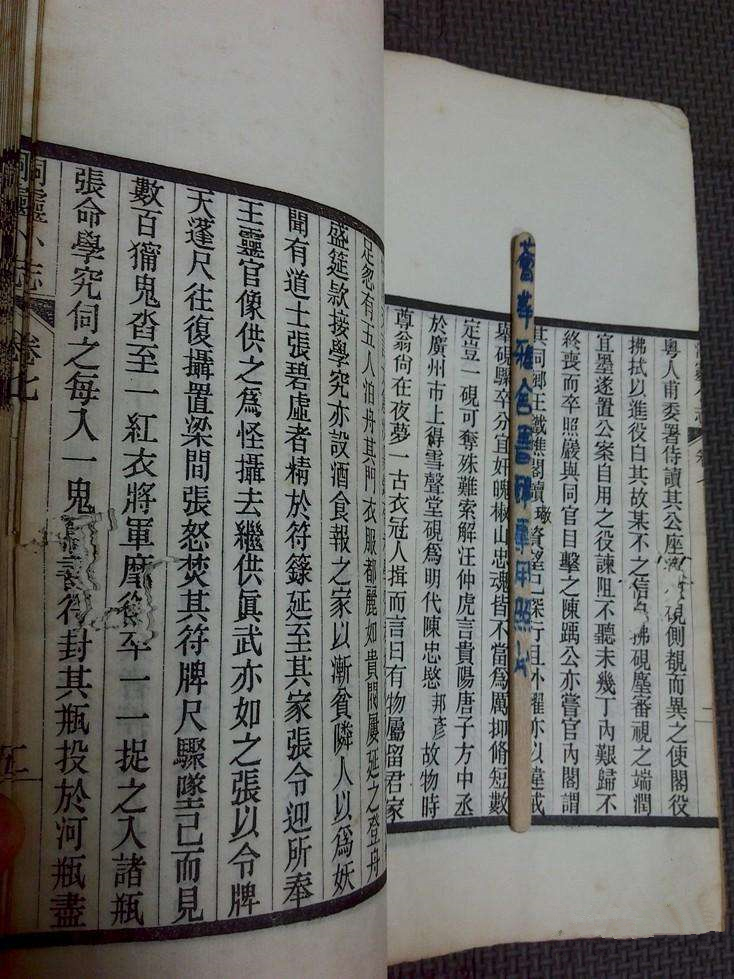 粵人甫委署侍讀其公座硯側覩而異之使閣役
拂拭以進役白其故某不之信拂硯塵審視之端潤
宜墨遂置公案自用之役諫阻不聽未幾丁內艱歸不
終喪而卒照巖與同官目擊之陳踽公亦嘗官內閣謂
其同鄉王
硯驟卒分宜奸魄椒山忠魂皆不當爲厲抑脩短數
定豈一硯可奪殊難索解汪仲虎言貴陽唐子方中丞
於廣州市上得雪聲堂硯爲明代陳忠愍邦彥故物時
尊翁尚在夜夢一古衣冠人揖而言曰有物屬留君家
薈萃雅舍書
足忽有五人泊舟其門衣服都麗如貴閥屢延之登舟
盛筵款接學究亦設酒食報之家以漸貧隣人以爲妖
聞有道士張碧虛者精於符籙延至其家張令迎所奉
王靈官像供之爲怪攝去繼供眞武亦如之張以令牌
天蓬尺往復攝置梁間張怒焚其符牌尺驟墜已而見
數百獰鬼沓至一紅衣將軍麾卒一一捉之入諸瓶
張命學究伺之每入一鬼符封其瓶投於河瓶盡
洞靈小志 卷七 五